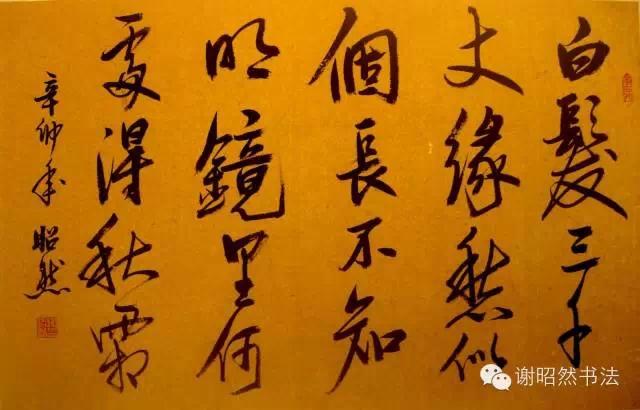 白髮三千
丈緣愁似
個長不知
明鏡里何
處得秋霜
辛卯年 昭然
谢昭然书法